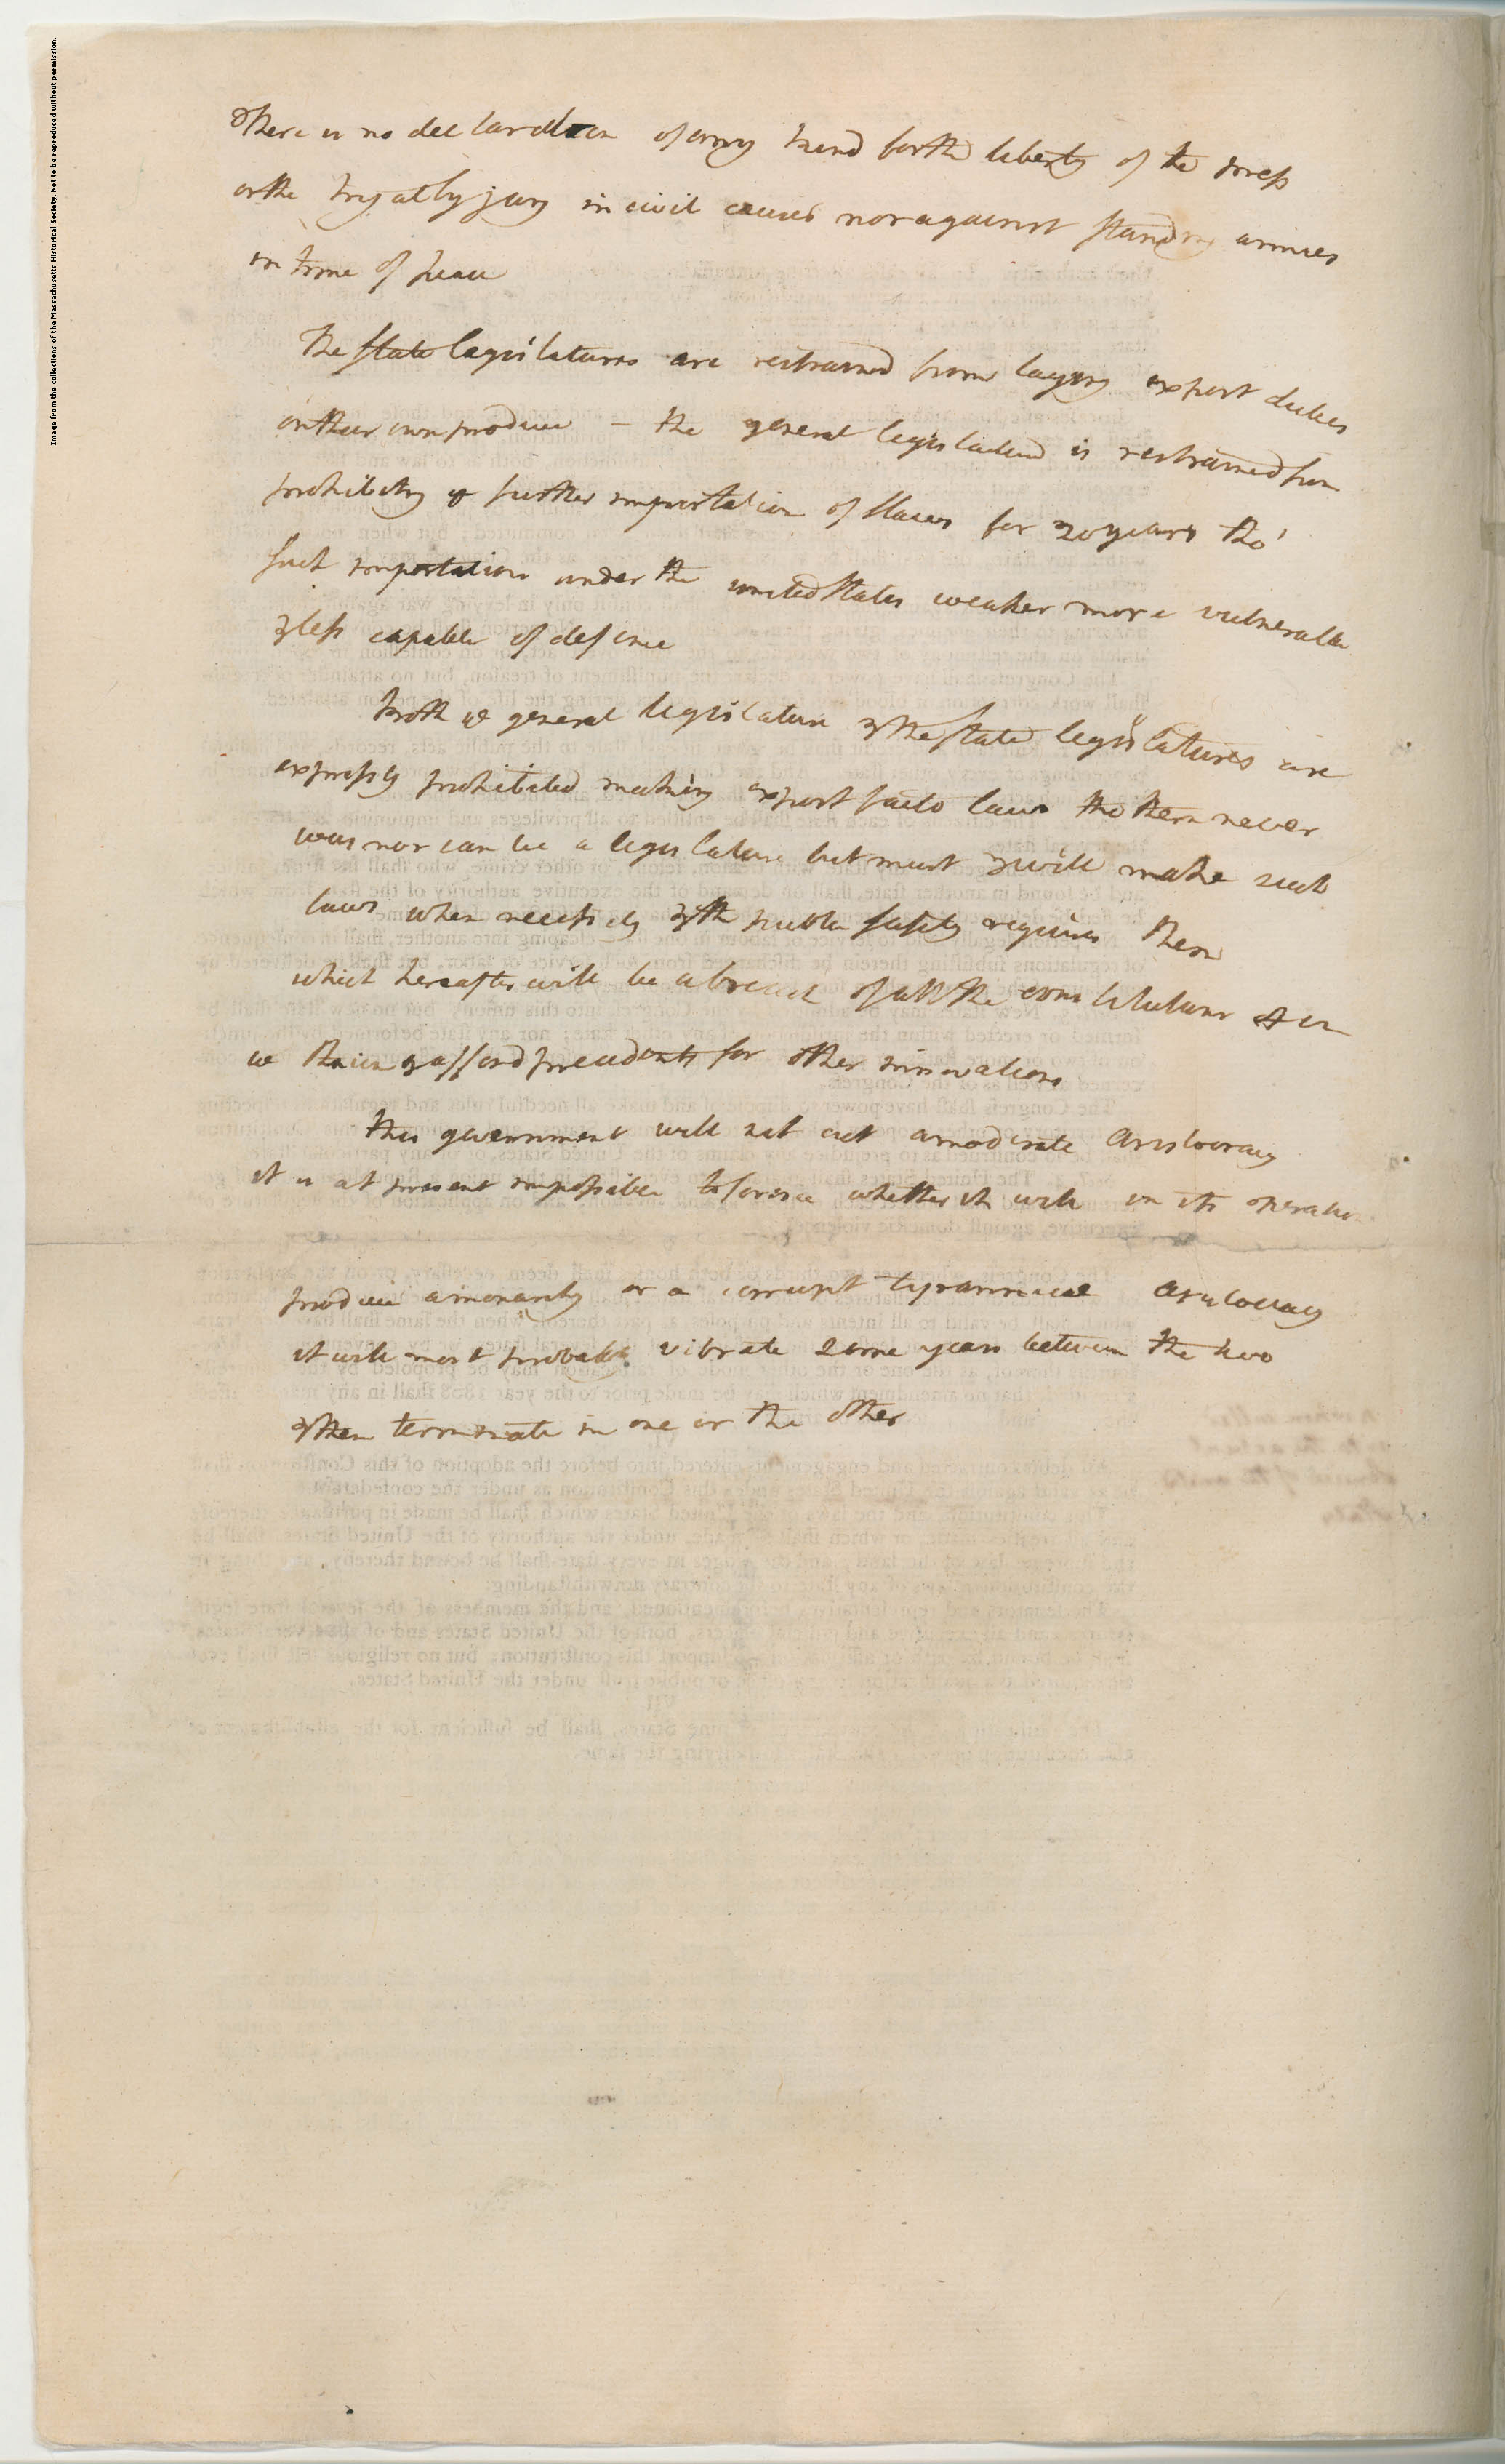 There is no declaration of any kind for the liberty of the press
or the tryal by jury in civil causes nor against standing armies
in time of peace
The state legislatures are restrained from laying export duties
on their own produce – the general legislature is restrained from
prohibiting ye further importation of slaves for 20 years tho'
such importations render the united States weaker more vulnerable
& less capable of defence
both ye general legislature & the state legislatures are
expressly prohibited making expost facto laws tho there never
was nor can be a legislature but must & will make such
laws when necessity & the public safety requires them
which hereafter will be a breach of all the constitutions
in ye & afford precedents for other innovations
this government will set out a moderate Aristocracy
it is at present impossible to foresee whether it will in its operation
produce a monarchy or a corrupt tyrannical Aristocracy
it will most probably vibrate some years between the two
& then terminate in one or the other
Image from the collections of the Massachusetts Historical Society. Not to be reproduced without permission.